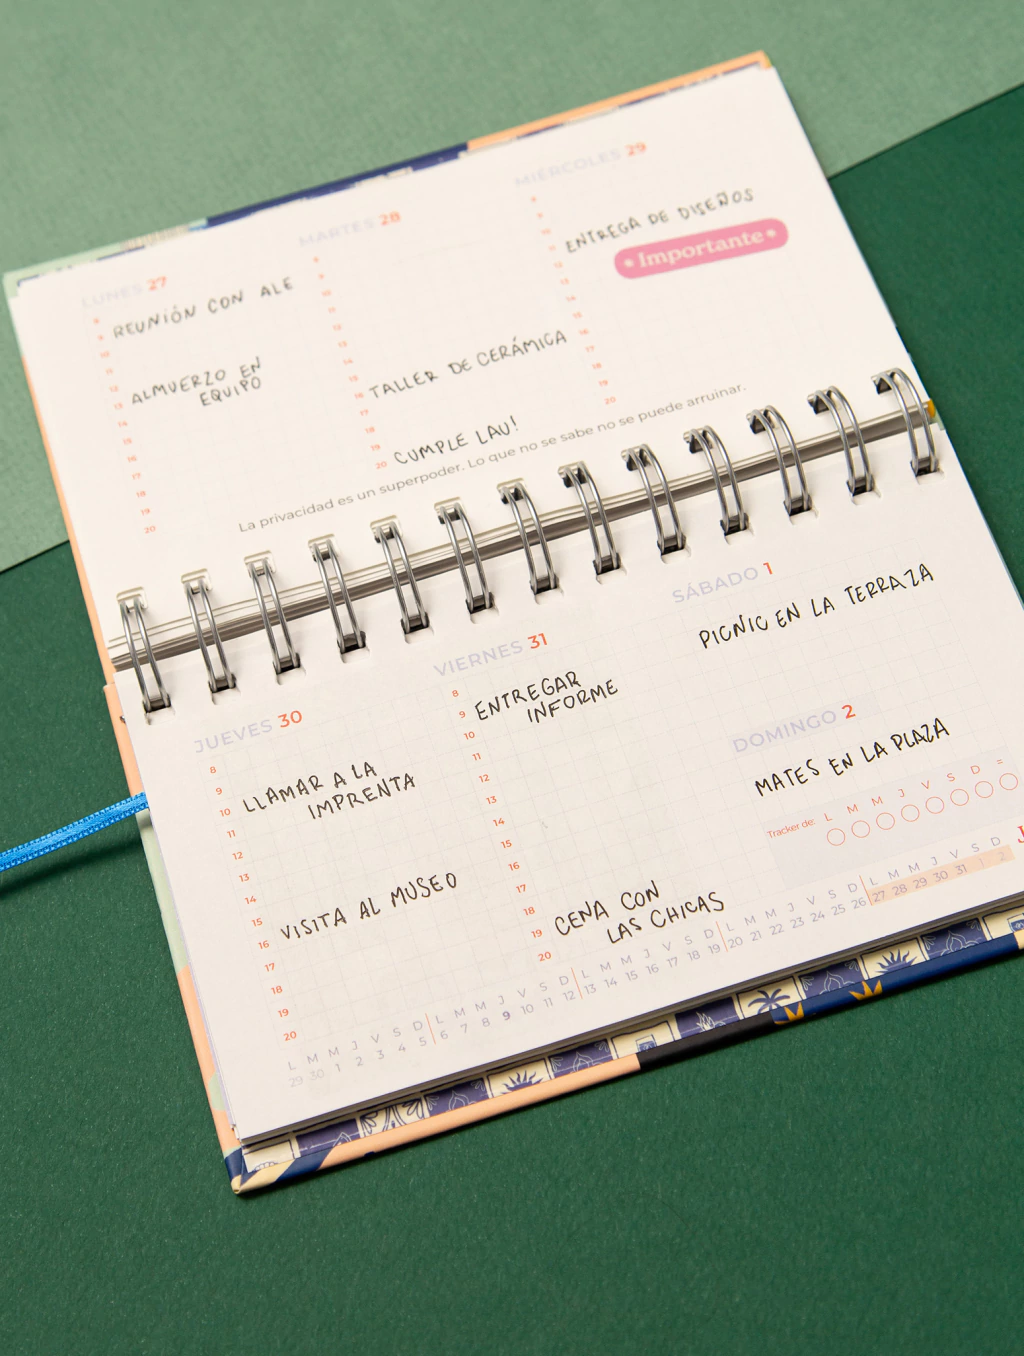 LUNES 27
8
9
10
11
12
13
14
15
16
17
18
19
20
REUNIÓN CON ALE
ALMUERZO EN
EQUIPO
MARTES 28
8
9
10
11
12
13
14
15
16
17
18
19
20
TALLER DE CERÁMICA
CUMPLE LAU!
MIÉRCOLES 29
8
9
10
11
12
13
14
15
16
17
18
19
20
ENTREGA DE DISEÑOS
Importante
La privacidad es un superpoder. Lo que no se sabe no se puede arruinar.
JUEVES 30
8
9
10
11
12
13
14
15
16
17
18
19
20
LLAMAR A LA
IMPRENTA
VISITA AL MUSEO
VIERNES 31
8
9
10
11
12
13
14
15
16
17
18
19
20
ENTREGAR
INFORME
CENA CON
LAS CHICAS
SÁBADO 1
PICNIC EN LA TERRAZA
DOMINGO 2
MATES EN LA PLAZA
Tracker de: L M M J V S D =
L M M J V S D L M M J V S D L M M J V S D L M M J V S D L M M J V S D
29 30 1 2 3 4 5 6 7 8 9 10 11 12 13 14 15 16 17 18 19 20 21 22 23 24 25 26 27 28 29 30 31 1 2